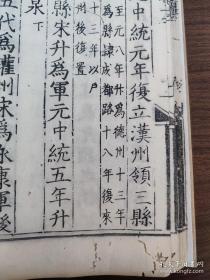 中統元年復立漢州領三縣
至元八年升爲德州十三年
爲縣隸成都路十八年復來
十三年以戶
後復置
縣宋升爲軍元中統五年升
泉下
五代爲灌州宋爲永康軍後